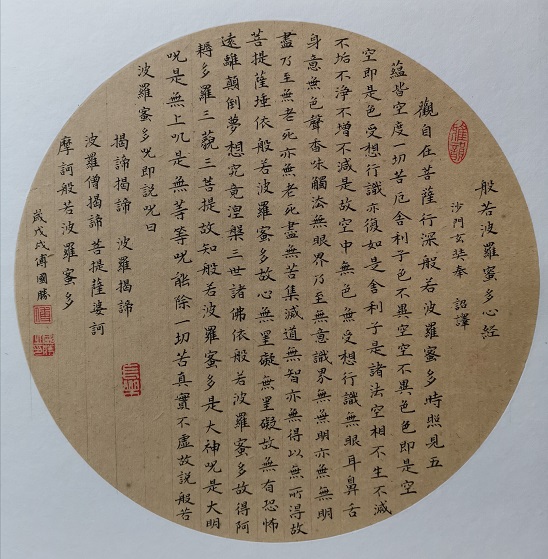 般若波羅蜜多心經
沙門玄奘奉 詔譯
觀自在菩薩行深般若波羅蜜多時照見五
蘊皆空度一切苦厄舍利子色不異空空不異色色即是空
空即是色受想行識亦復如是舍利子是諸法空相不生不滅
不垢不淨不增不減是故空中無色無受想行識無眼耳鼻舌
身意無色聲香味觸法無眼界乃至無意識界無無明亦無無明
盡乃至無老死亦無老死盡無苦集滅道無智亦無得以無所得故
菩提薩埵依般若波羅蜜多故心無罣礙無罣礙故無有恐怖
遠離顛倒夢想究竟涅槃三世諸佛依般若波羅蜜多故得阿
耨多羅三藐三菩提故知般若波羅蜜多是大神呪是大明
呪是無上呪是無等等呪能除一切苦真實不虛故説般若
波羅蜜多呪即説呪曰
揭諦揭諦 波羅揭諦
波羅僧揭諦 菩提薩婆訶
摩訶般若波羅蜜多
歲戊戌傅國勝